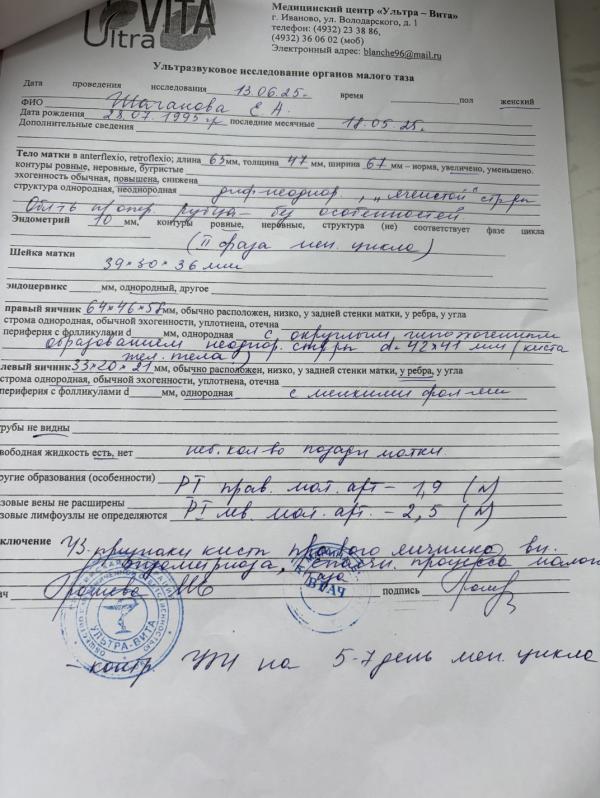 VITA
Ultra
Медицинский центр «Ультра – Вита»
г. Иваново, ул. Володарского, д. 1
телефон: (4932) 23 38 86,
(4932) 36 06 02 (моб)
Электронный адрес: blanche96@mail.ru
Ультразвуковое исследование органов малого таза
Дата проведения исследования 13.06.25г. время пол женский
ФИО Е А.
Дата рождения 28.07.1995г последние месячные 18.05.25г.
Дополнительные сведения
Тело матки в anterflexio, retroflexio; длина 63 мм, толщина 47 мм, ширина 67 мм – норма, увеличено, уменьшено.
контуры ровные, неровные, бугристые
эхогенность обычная, повышена, снижена
структура однородная, неоднородная диф. неоднор., „ячеистой" стр-ры
Обл. п/опер. рубца – без особенностей.
Эндометрий 10 мм, контуры ровные, неровные, структура (не) соответствует фазе цикла
(II фаза мен. цикла)
Шейка матки
39×30×36 мм
эндоцервикс мм, однородный, другое
правый яичник 64×46×58 мм, обычно расположен, низко, у задней стенки матки, у ребра, у угла
строма однородная, обычной эхогенности, уплотнена, отечна
периферия с фолликулами d мм, однородная с округлым, гипоэхогенным
образованием неоднор. стр-ры d= 42×41 мм (киста
жел. тела)
левый яичник 33×20×21 мм, обычно расположен, низко, у задней стенки матки, у ребра, у угла
строма однородная, обычной эхогенности, уплотнена, отечна
периферия с фолликулами d мм, однородная с мелкими фол-ми
трубы не видны
вободная жидкость есть, нет неб. кол-во позади матки.
ругие образования (особенности) PI прав. мат. арт – 1,9 (N)
азовые вены не расширены
азовые лимфоузлы не определяются PI лев. мат. арт. – 2,5 (N)
аключение УЗ-признаки кисты правого яичника, вн.
эндометриоза, спаечн. процесса малого
таза
ач подпись
ВРАЧ
УЛЬТРА-ВИТА
– контр УЗИ на 5-7 день мен. цикла